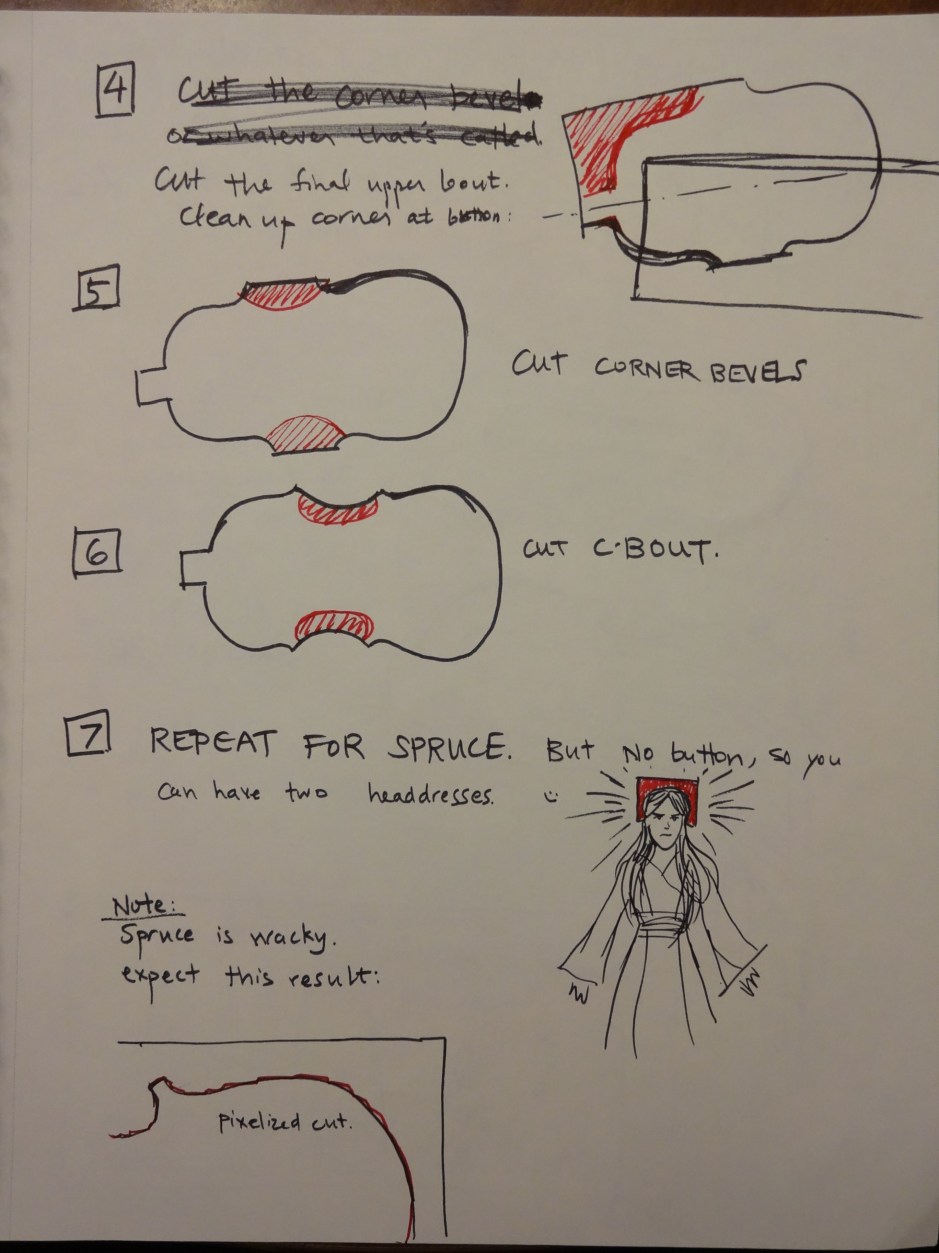 4
Cut the corner bevel
or whatever that's called.
Cut the final upper bout.
Clean up corner at button:
5
CUT CORNER BEVELS
6
CUT C-BOUT.
7
REPEAT FOR SPRUCE. But No button, so you
can have two headdresses. :)
Note:
Spruce is wacky.
expect this result:
pixelized cut.